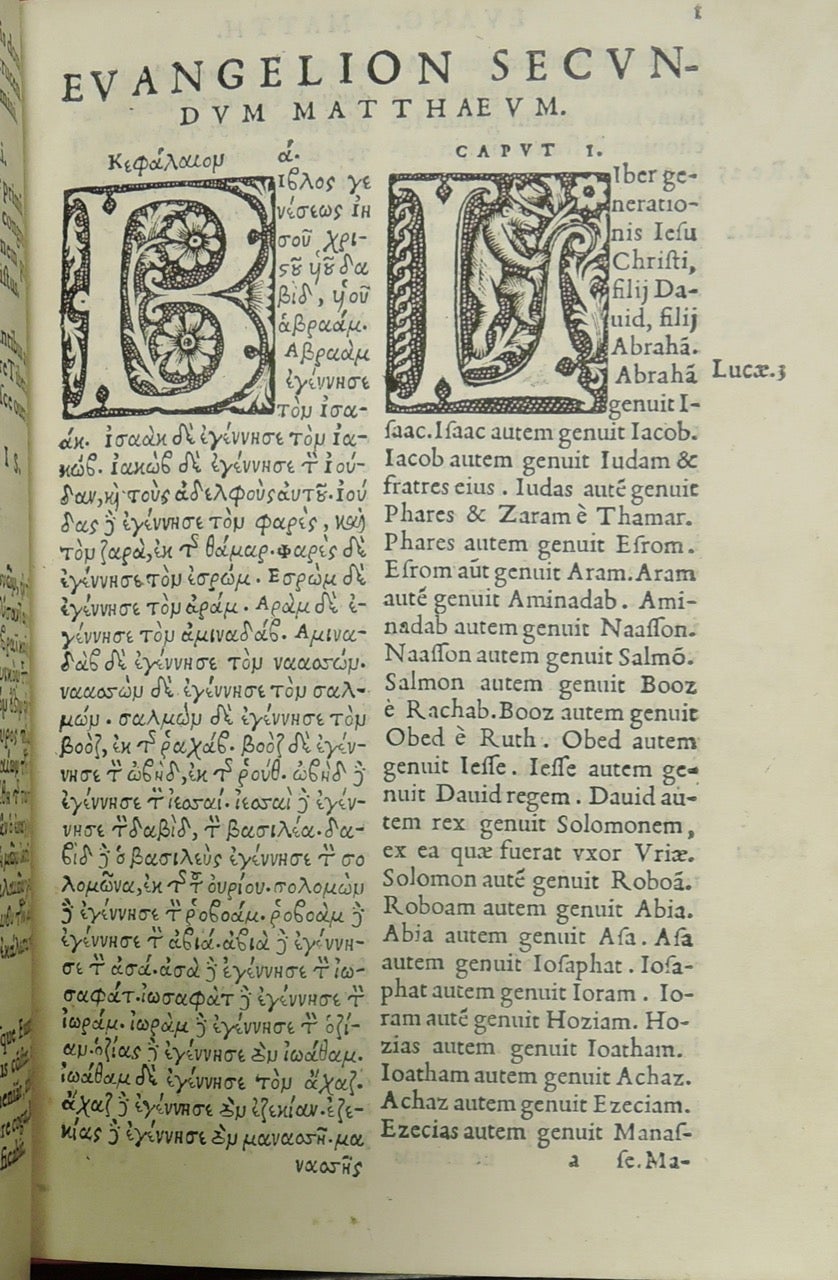 1
EVANGELION SECVN-
DVM MATTHAEVM.
Κεφάλαιον ά.
Βίβλος γε
νέσεως ἰη
σοῦ χρι-
στοῦ ὑοῦ δα
βίδ, ὑοῦ
ἀβραάμ.
Αβραὰμ
ἐγέννησε
τὸν ἰσα-
άκ. ἰσαὰκ δὲ ἐγέννησε τὸν ἰα-
κώβ. ἰακὼβ δὲ ἐγέννησε τὸν ἰού-
δαν, καὶ τοὺς ἀδελφοὺς αὐτοῦ. ἰού
δας δὲ ἐγέννησε τὸν φαρὲς, καὶ
τὸν ζαρὰ, ἐκ τῆς θάμαρ. Φαρὲς δὲ
ἐγέννησε τὸν ἐσρώμ. Εσρὼμ δὲ
ἐγέννησε τὸν ἀράμ. Αρὰμ δὲ ἐ-
γέννησε τὸν ἀμιναδάβ. Αμινα-
δὰβ δὲ ἐγέννησε τὸν ναασσών.
ναασσὼν δὲ ἐγέννησε τὸν σαλ-
μών. σαλμὼν δὲ ἐγέννησε τὸν
βοὸζ, ἐκ τῆς ῥαχάβ. βοὸζ δὲ ἐγέν-
νησε τὸν ὠβὴδ, ἐκ τῆς ῥούθ. ὠβὴδ δὲ
ἐγέννησε τὸν ἰεσσαί. ἰεσσαὶ δὲ ἐγέν-
νησε τὸν δαβὶδ, τὸν βασιλέα. δα-
βὶδ δὲ ὁ βασιλεὺς ἐγέννησε τὸν σο
λομῶνα, ἐκ τῆς τοῦ ουρίου. σολομὼν
δὲ ἐγέννησε τὸν ῥοβοάμ. ῥοβοὰμ δὲ
ἐγέννησε τὸν ἀβιά. ἀβιὰ δὲ ἐγέννη-
σε τὸν ἀσά. ἀσὰ δὲ ἐγέννησε τὸν ἰω-
σαφάτ. ἰωσαφὰτ δὲ ἐγέννησε τὸν
ἰωράμ. ἰωρὰμ δὲ ἐγέννησε τὸν ὀζί-
αν. ὀζίας δὲ ἐγέννησε τὸν ἰωάθαμ.
ἰωάθαμ δὲ ἐγέννησε τὸν ἄχαζ.
ἄχαζ δὲ ἐγέννησε τὸν ἐζεκίαν. ἐζε-
κίας δὲ ἐγέννησε τὸν μανασσῆ. μα
νασσῆς
CAPVT I.
LIber ge-
neratio-
nis Iesu
Christi,
filij Da-
uid, filij
Abrahã.
Abrahã
genuit I-
saac. Isaac autem genuit Iacob.
Iacob autem genuit Iudam &
fratres eius. Iudas autẽ genuit
Phares & Zaram è Thamar.
Phares autem genuit Esrom.
Esrom aũt genuit Aram. Aram
autẽ genuit Aminadab. Ami-
nadab autem genuit Naasson.
Naasson autem genuit Salmõ.
Salmon autem genuit Booz
è Rachab. Booz autem genuit
Obed è Ruth. Obed autem
genuit Iesse. Iesse autem ge-
nuit Dauid regem. Dauid au-
tem rex genuit Solomonem,
ex ea quæ fuerat vxor Vriæ.
Solomon autẽ genuit Roboã.
Roboam autem genuit Abia.
Abia autem genuit Asa. Asa
autem genuit Iosaphat. Iosa-
phat autem genuit Ioram. Io-
ram autẽ genuit Hoziam. Ho-
zias autem genuit Ioatham.
Ioatham autem genuit Achaz.
Achaz autem genuit Ezeciam.
Ezecias autem genuit Manas-
a se. Ma-
Lucæ.3